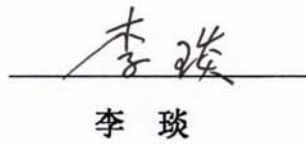 李琰
李 琰